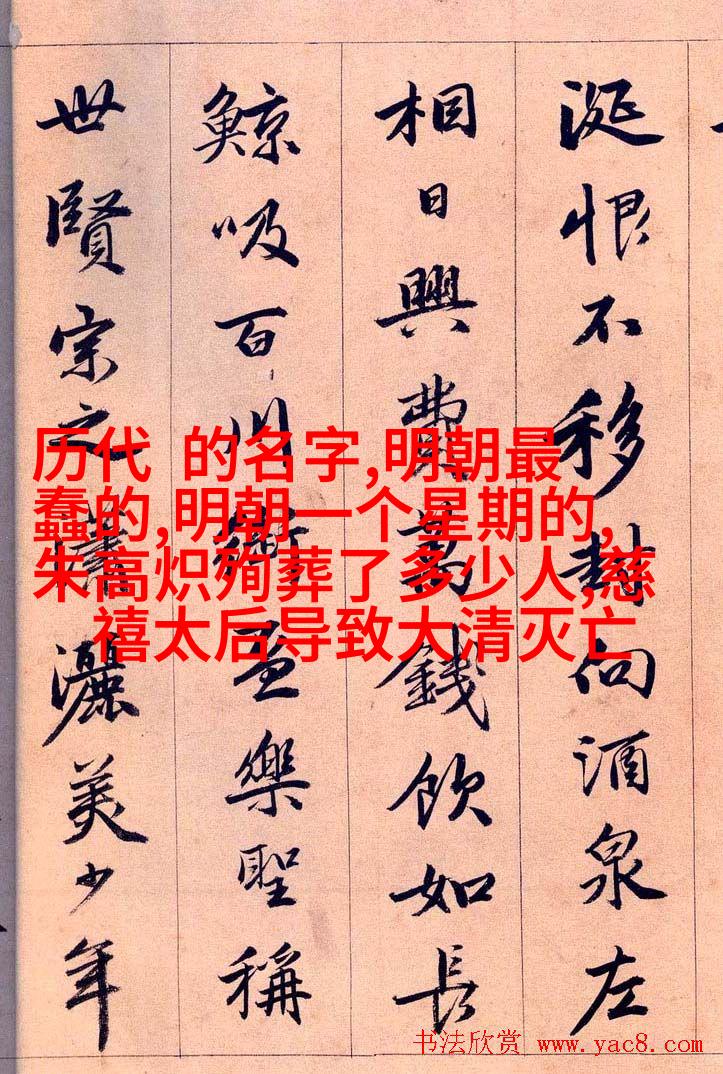 涎恨不移封向酒泉左
相日興費萬錢飲如長
鯨吸百川銜盃樂聖稱
世賢宗之瀟灑美少年
历代 的名字,明朝最
蠢的,明朝一个星期的,
朱高炽殉葬了多少人,慈
禧太后导致大清灭亡
书法欣赏 www.yac8.com